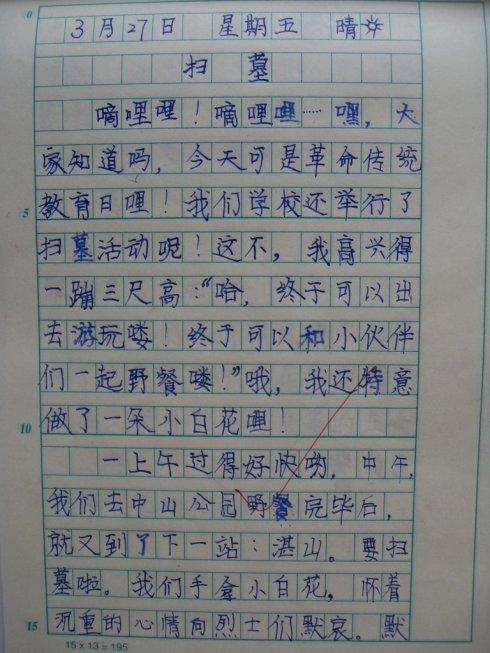 3月27日 星期五 晴
扫墓
嘀哩哩！嘀哩哩……嘿，大
家知道吗，今天可是革命传统
教育日哩！我们学校还举行了
5
扫墓活动呢！这不，我高兴得
一蹦三尺高：“哈，终于可以出
去游玩喽！终于可以和小伙伴
们一起野餐喽！”哦，我还特意
做了一朵小白花哩！
10
一上午过得好快哟，中午，
我们去中山公园野餐完毕后，
就又到了下一站：湛山。要扫
墓啦。我们手拿小白花，怀着
沉重的心情向烈士们默哀。默
15
15×13=195